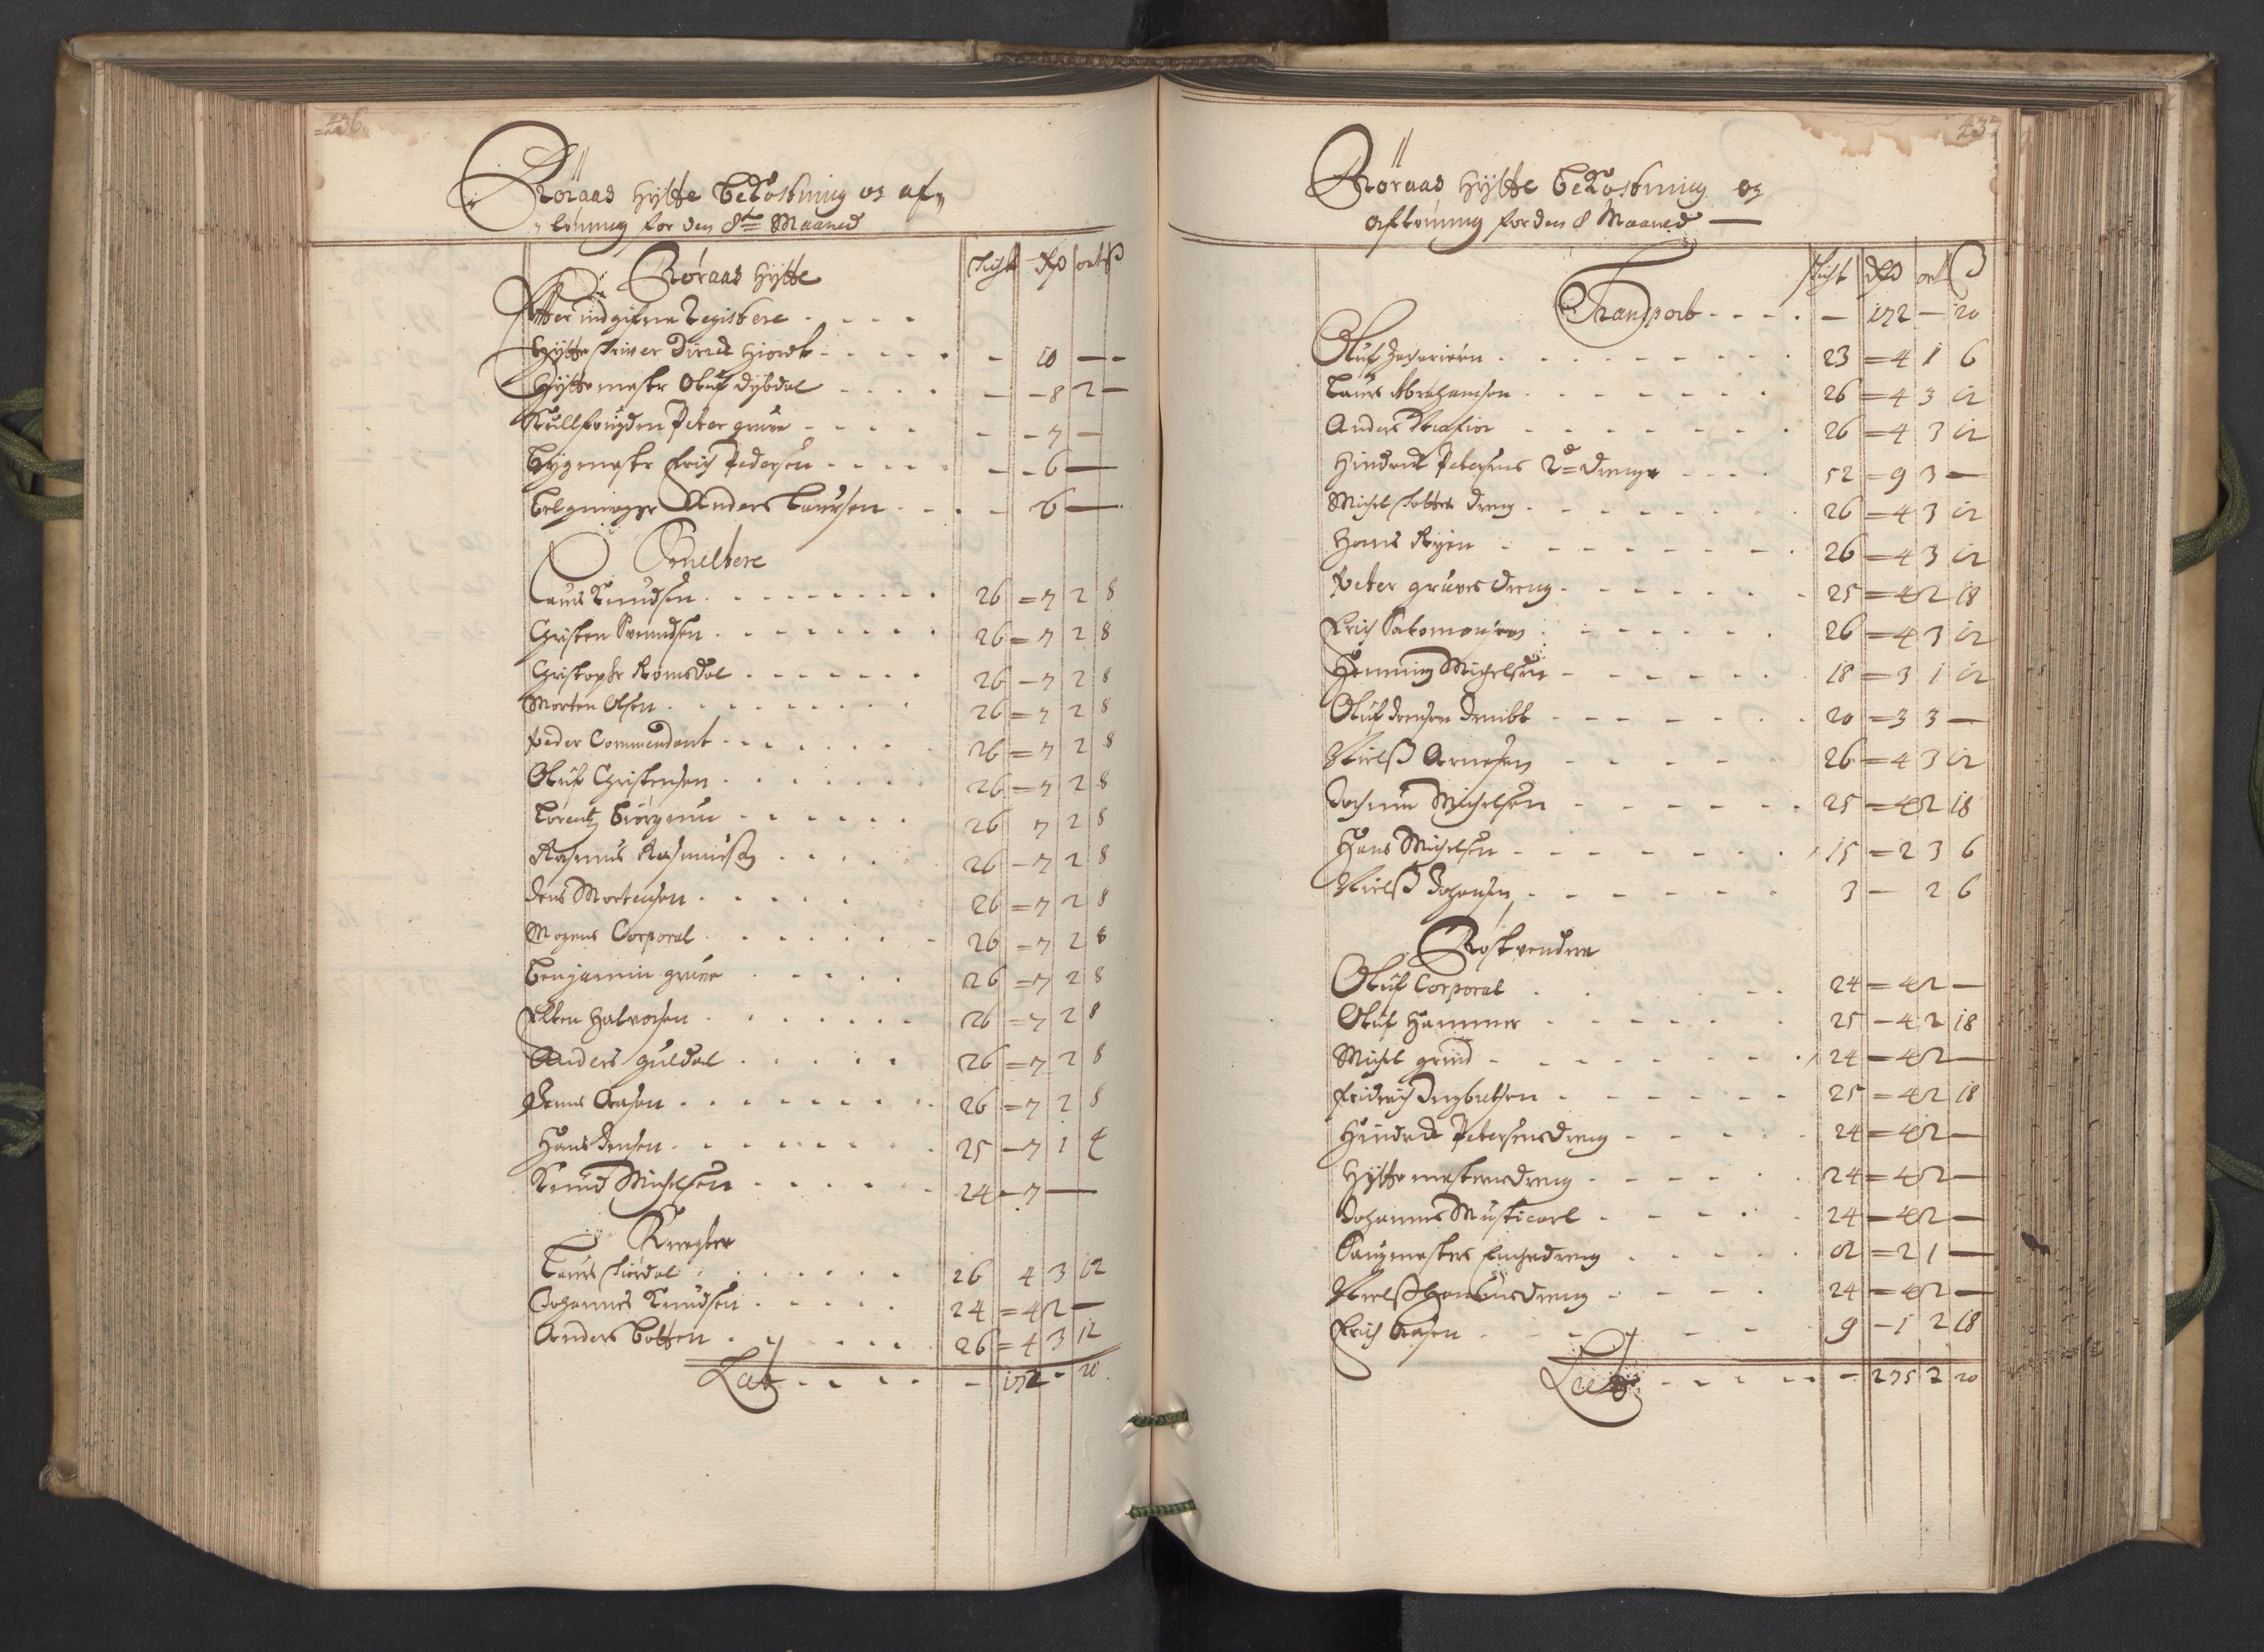 436
Röraas Hÿtte Bekostning og af„
„lönning for den 8de Maaned
Röraas Hÿtte
Schigt Rd ort ß
Effter indgifne Registere
Hÿtteskriver Dirick Hiordt - 10 — -
Hÿttemester Oluf Dÿbdal - - 8 2 —
Kullfougden Peter gruve - - 7 —
Bÿgmester Erich Pedersen - - 6 —
Belgmager Anders Laursen - 6 —
Smeltere
Laurs Knudsen 26 = 7 2 8
Christen Svendsen 26 = 7 2 8
Christopher Romsdal 26 - 7 2 8
Morten Olsen 26 = 7 2 8
Peder Commendant 26 = 7 2 8
Oluf Christensen 26 = 7 2 8
Lorentz Biörgmn 26 7 2 8
Rasmus Rasmusen 26 - 7 2 8
Jens Mortensen 26 = 7 2 8
Mogens Corporal 26 - 7 2 8
Benjamin gruve 26 = 7 2 8
Elten Halvorsen 26 = 7 2 8
Anders guldal 26 = 7 2 8
Joenn Aasen 26 = 7 2 8
Hans Jensen 25 - 7 1 4
Knud Michelsen 24 - 7 —
Knegter
Laurs Stördal 26 4 3 12
Johannes Knudsen 24 = 4 2 —
Anders Botten 26 = 4 3 12
Lat - 172 - 20
437
Röraas Hÿtte Bekostning og
aflönning for den 8 Maaned —
Schigt Rd ort ß
Transport - 172 - 20
Oluf Zachariesen 23 = 4 1 6
Laurs Abrahamsen 26 = 4 3 12
Anders 26 = 4 3 12
Hindrick Petersens 2de Drenge 52 = 9 3 —
Michel Skotters Dreng 26 = 4 3 12
Hans Ryen 26 = 4 3 12
Peter gruves Dreng 25 = 4 2 18
Erich Salomonsen 26 = 4 3 12
Henning Michelsen 18 = 3 1 12
Oluf Jensen 20 = 3 3 —
Nielß Arnesen 26 = 4 3 12
Jochum Michelsen 25 = 4 2 18
Hans Michelsen 15 = 2 3 6
Nielß Johansen 3 - 2 6
Röstvendere
Oluf Corporal 24 = 4 2 —
Oluf Hammer 25 - 4 2 18
Michel grind 24 = 4 2 —
Fridrich Ingbretsen 25 = 4 2 18
Hindrick Petersens Dreng 24 = 4 2 —
Hÿttemesterens Dreng 24 = 4 2 —
Johannes Musticarl 24 = 4 2 —
Saugmesters Dreng 12 = 2 1 —
Nielß Dreng 24 = 4 2 —
Erich Aasen 9 - 1 2 18
Lat - 275 2 20